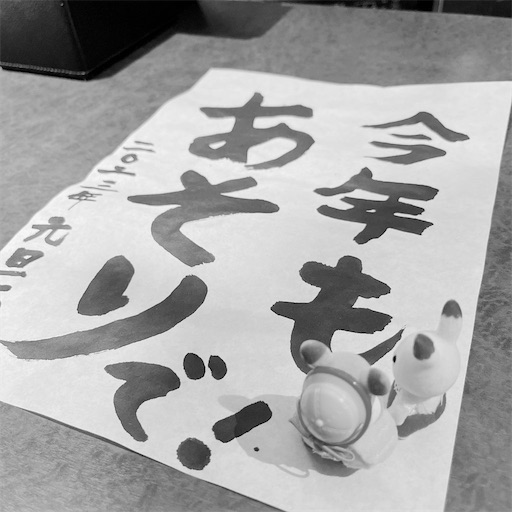 今年も
あそりで!
二〇二三年 元旦